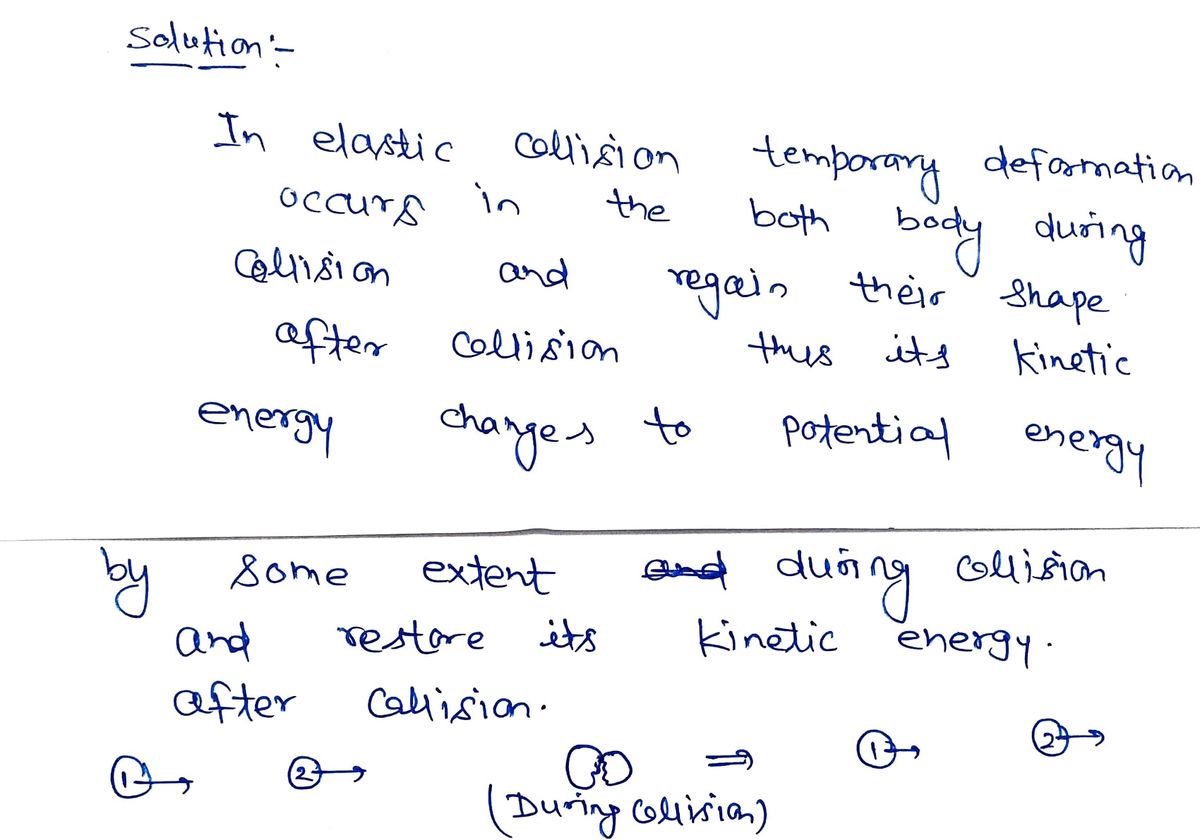 Solution:-
In elastic collision temporary deformation
occurs in the both body during
Collision and regain their shape
after collision thus its kinetic
energy changes to potential energy
by some extent and during collision
and restore its kinetic energy.
after collision.
1 2 ⇒ 1 2
(During Collision)